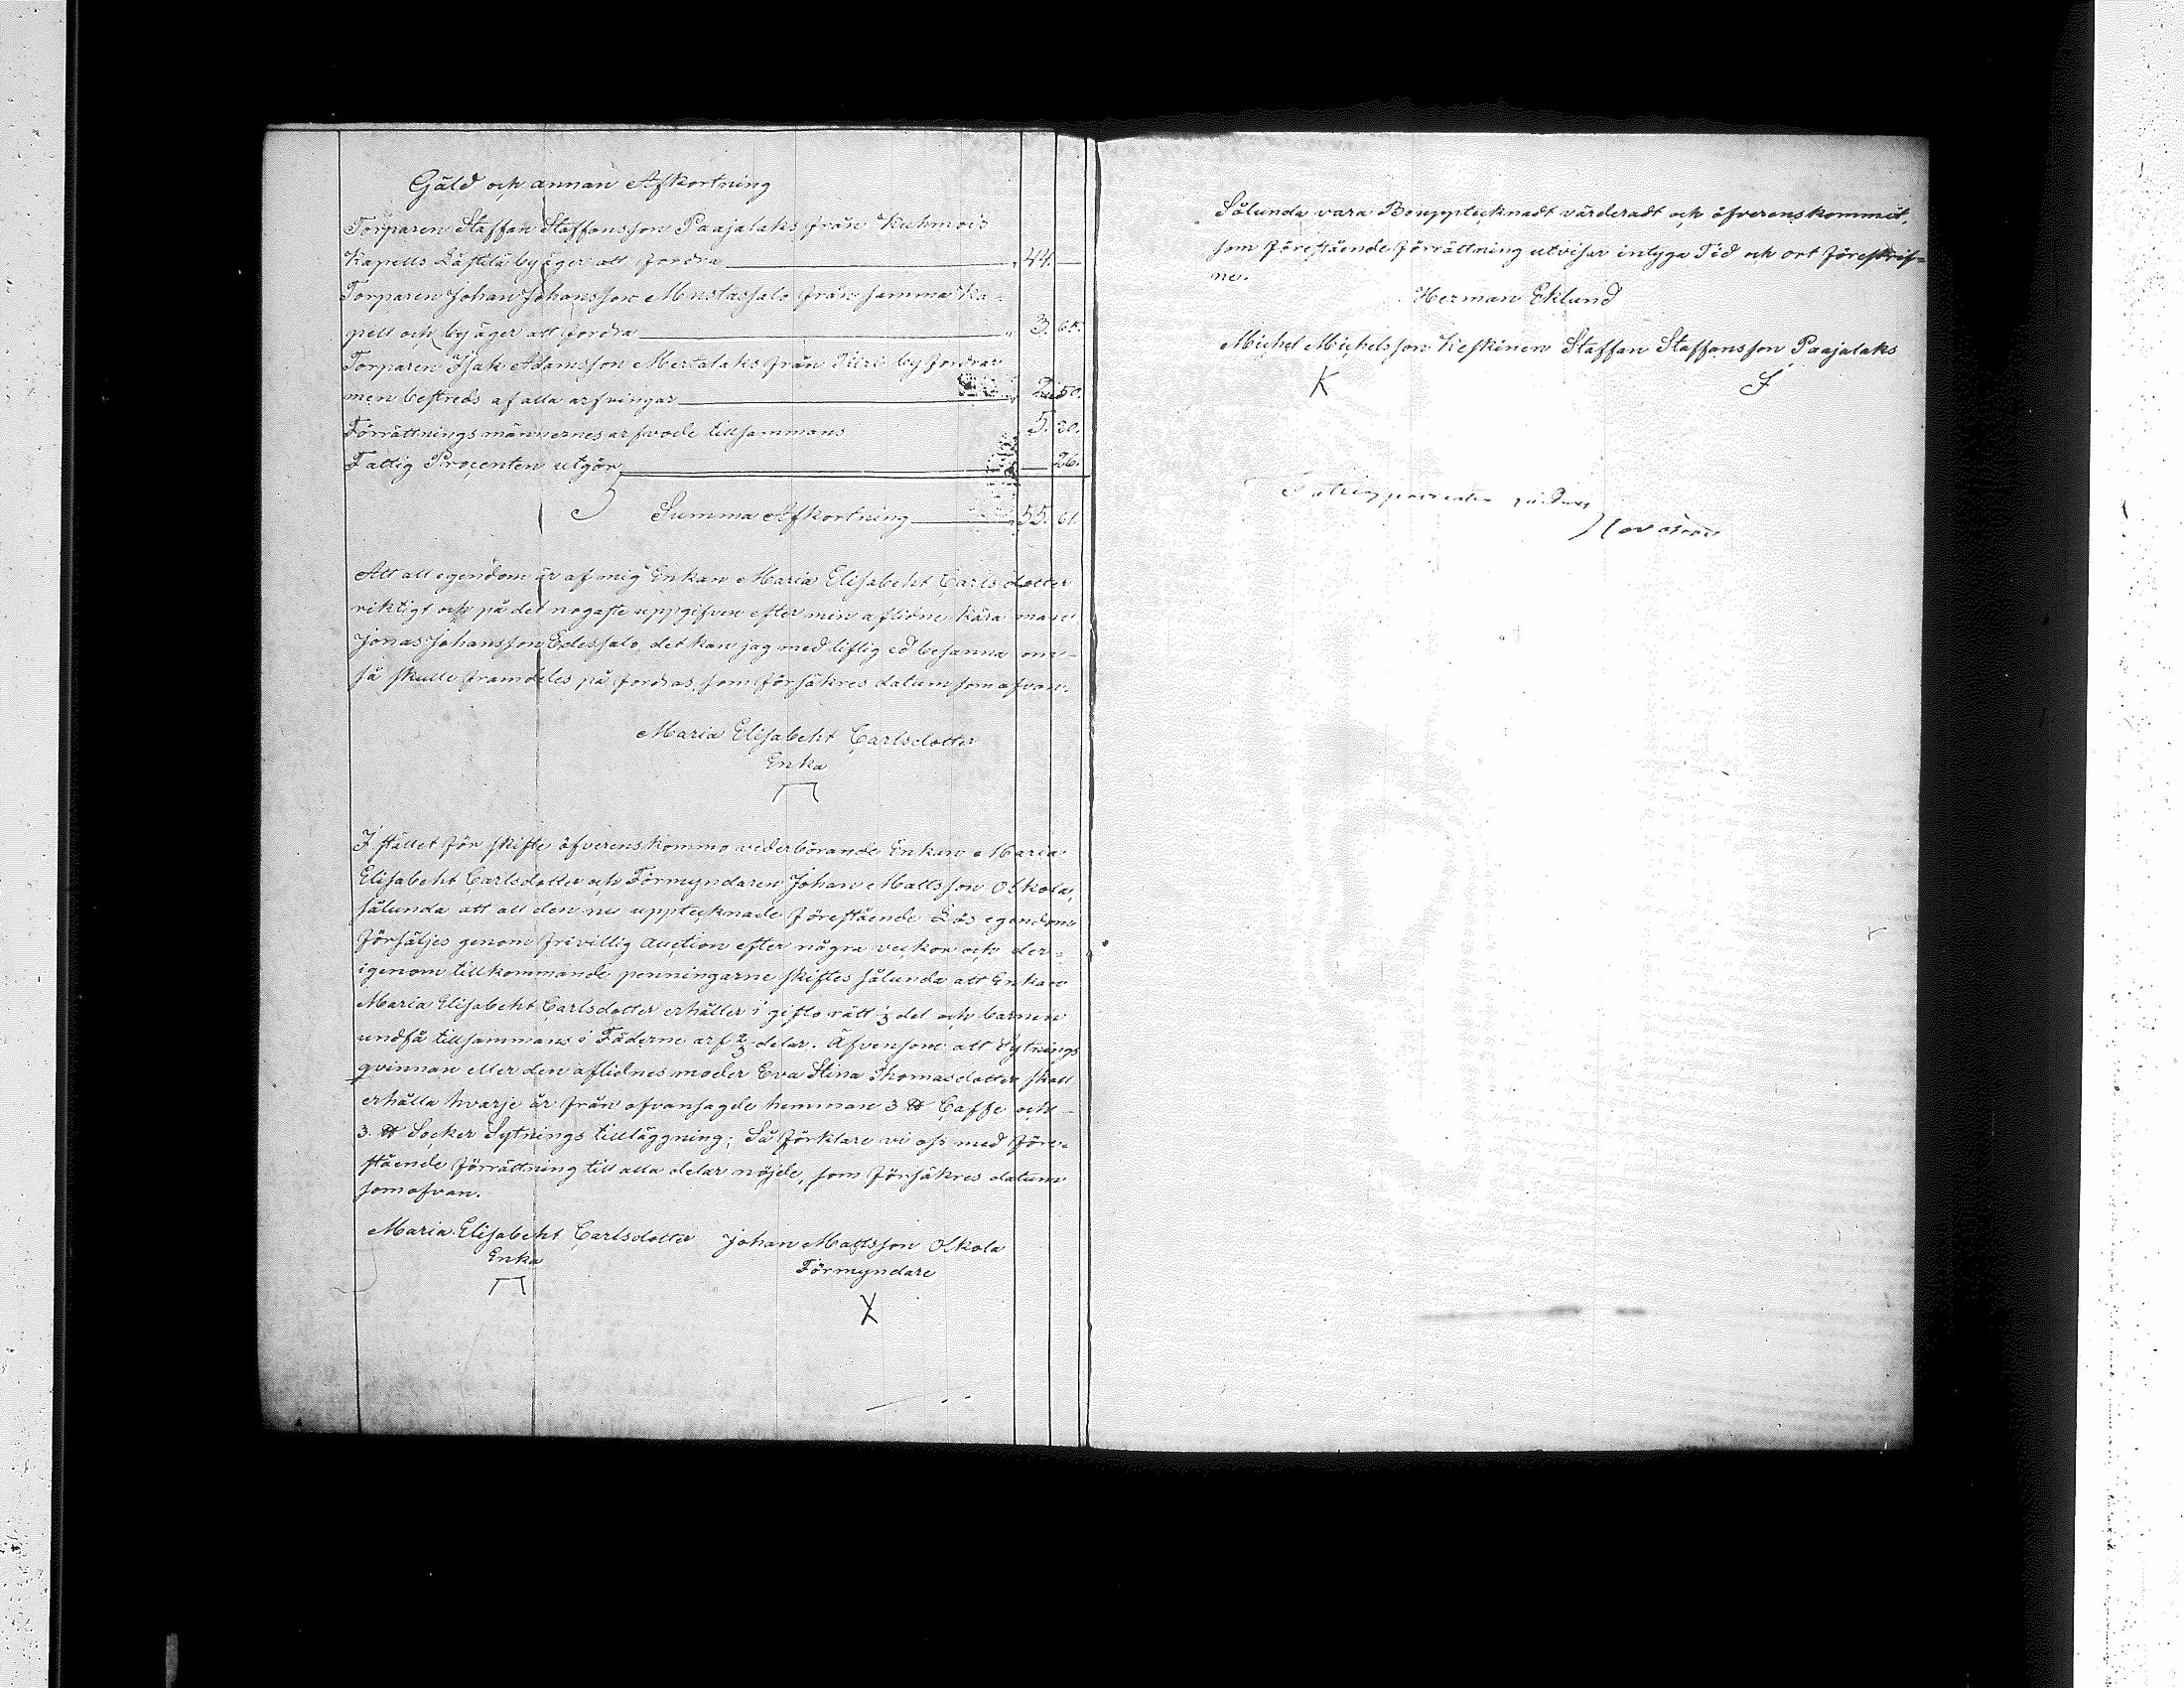 Gäld och annan Afkortning
Torparen Staffan Staffansson Paajalaks från Kuhmois
Kapells Lästilä by äger att fordra 44. —
Torparen Johan Johansson Mustassalo från samma Ka-
pell och by äger att fordra 3. 65.
Torparen Isak Adamsson Mertalaks från by fordrar
men bestreds af alla arfvingar 2. 50.
Förrättningsmännernes arfvode tillsammans 5. 20.
Fattig Procenten utgör — 26.
Summa Afkortning 55. 61.
Att all egendom är af mig Enkan Maria Elisabeht Carlsdotter
riktigt och på det nogaste uppgifven efter min aflidne kära man
Jonas Johansson Edessalo, det kan jag med liflig ed besanna om
så skulle framdeles på fordras, som försäkres datum som ofvan.
Maria Elisabeht Carlsdotter
Enka
I stället för skifte öfverenskommo vederbörande Enkan Maria
Elisabeht Carlsdotter och Förmyndaren Johan Mattsson Olkola,
sålunda att all den nu upptecknade förestående Lös egendom
försäljes genom frivillig auction efter några veckor och der-
igenom tillkommande penningarne skiftes sålunda att Enkan
Maria Elisabeht Carlsdotter erhåller i gifto rätt 1/3 del och barnen
undfå tillsammans i Fäderne arf 2/3 delar. Äfvensom att Sytnings
qvinnan eller den aflidnes moder Eva Stina Thomasdotter skall
erhålla hvarje år från ofvansagde hemman 3 ℔ Caffe och
3. ℔ Socker Sytnings tilläggning; Så förklare vi oss med före-
stående förrättning till alla delar nöjde, som försäkres datum
som ofvan.
Maria Elisabeht Carlsdotter Johan Mattsson Olkola
Enka Förmyndare
Sålunda vara Bouppteeknadt värderadt och öfverenskommit,
som förestående förrättning utvisar intyga Tid och ort föreskrif-
ne.
Herman Eklund
Michel Michelsson Keskinen Staffan Staffansson Paajalaks
K S